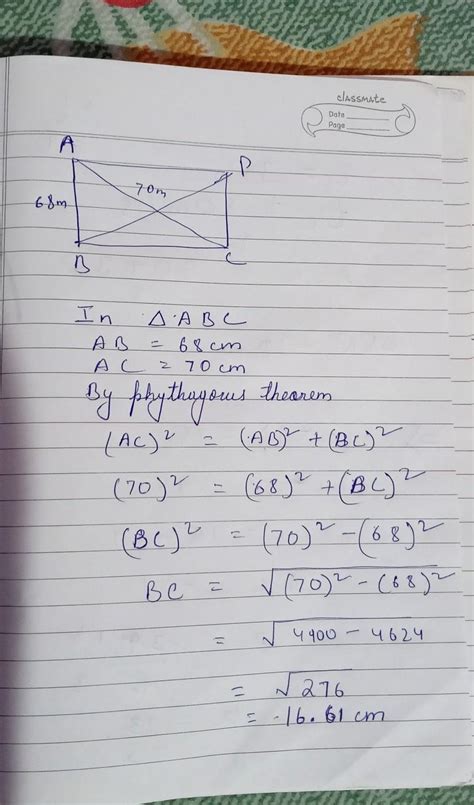 classmate
Date
Page
A
P
70m
68m
B
C
In Δ ABC
AB = 68cm
AC = 70cm
By phythagorus theorem
(AC)² = (AB)² + (BC)²
(70)² = (68)² + (BC)²
(BC)² = (70)² - (68)²
BC = √(70)² - (68)²
= √4900 - 4624
= √276
= 16.61 cm